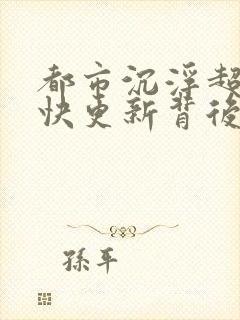 都市沉浮超
快更新背後
孫平